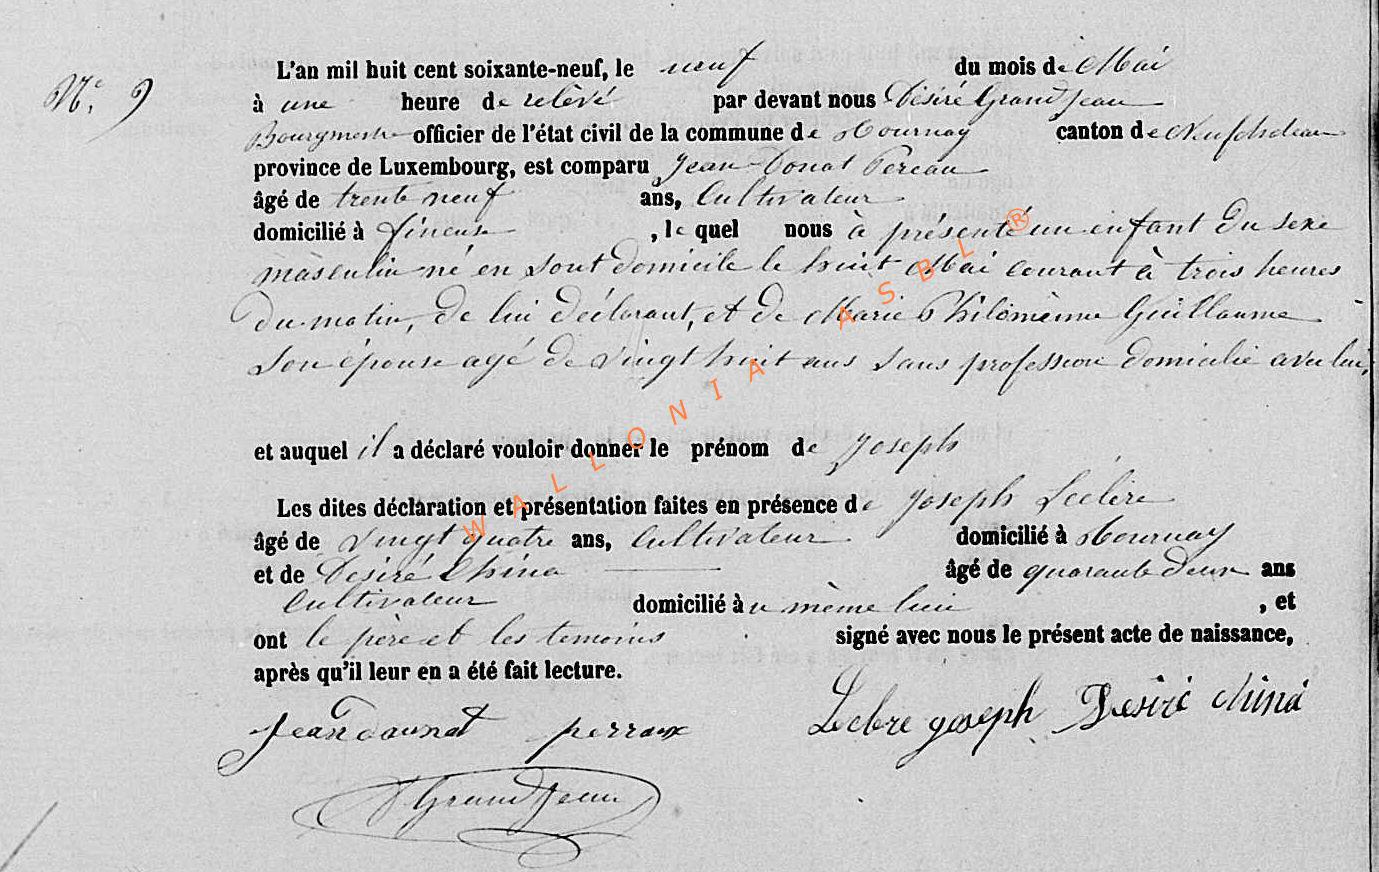 N° 9
L'an mil huit cent soixante-neuf, le neuf du mois de Mai
à une heure de relévé par devant nous Désiré Grandjean
Bourgmestre officier de l'état civil de la commune de Tournay canton de Neufchateau
province de Luxembourg, est comparu Jean-Donat Pereau
âgé de trente neuf ans, Cultivateur
domicilié à fineuse, le quel nous à présenté un enfant du sexe
masculin né en sont domicile le huit Mai courant à trois heures
du matin, de lui déclarant, et de Marie Philomène Guillaume
son épouse agé de vingt huit ans sans profession domicilié avec lui,
et auquel il a déclaré vouloir donner le prénom de Joseph
Les dites déclaration et présentation faites en présence de Joseph Leclère
âgé de vingt quatre ans, Cultivateur domicilié à Tournay
et de Désiré China âgé de quarante deux ans
Cultivateur domicilié au même lieu, et
ont le père et les temoins signé avec nous le présent acte de naissance,
après qu'il leur en a été fait lecture.
Jean daunat perraux Leclere joseph Desiré china
D Grandjean
WALLONIA ASBL ®